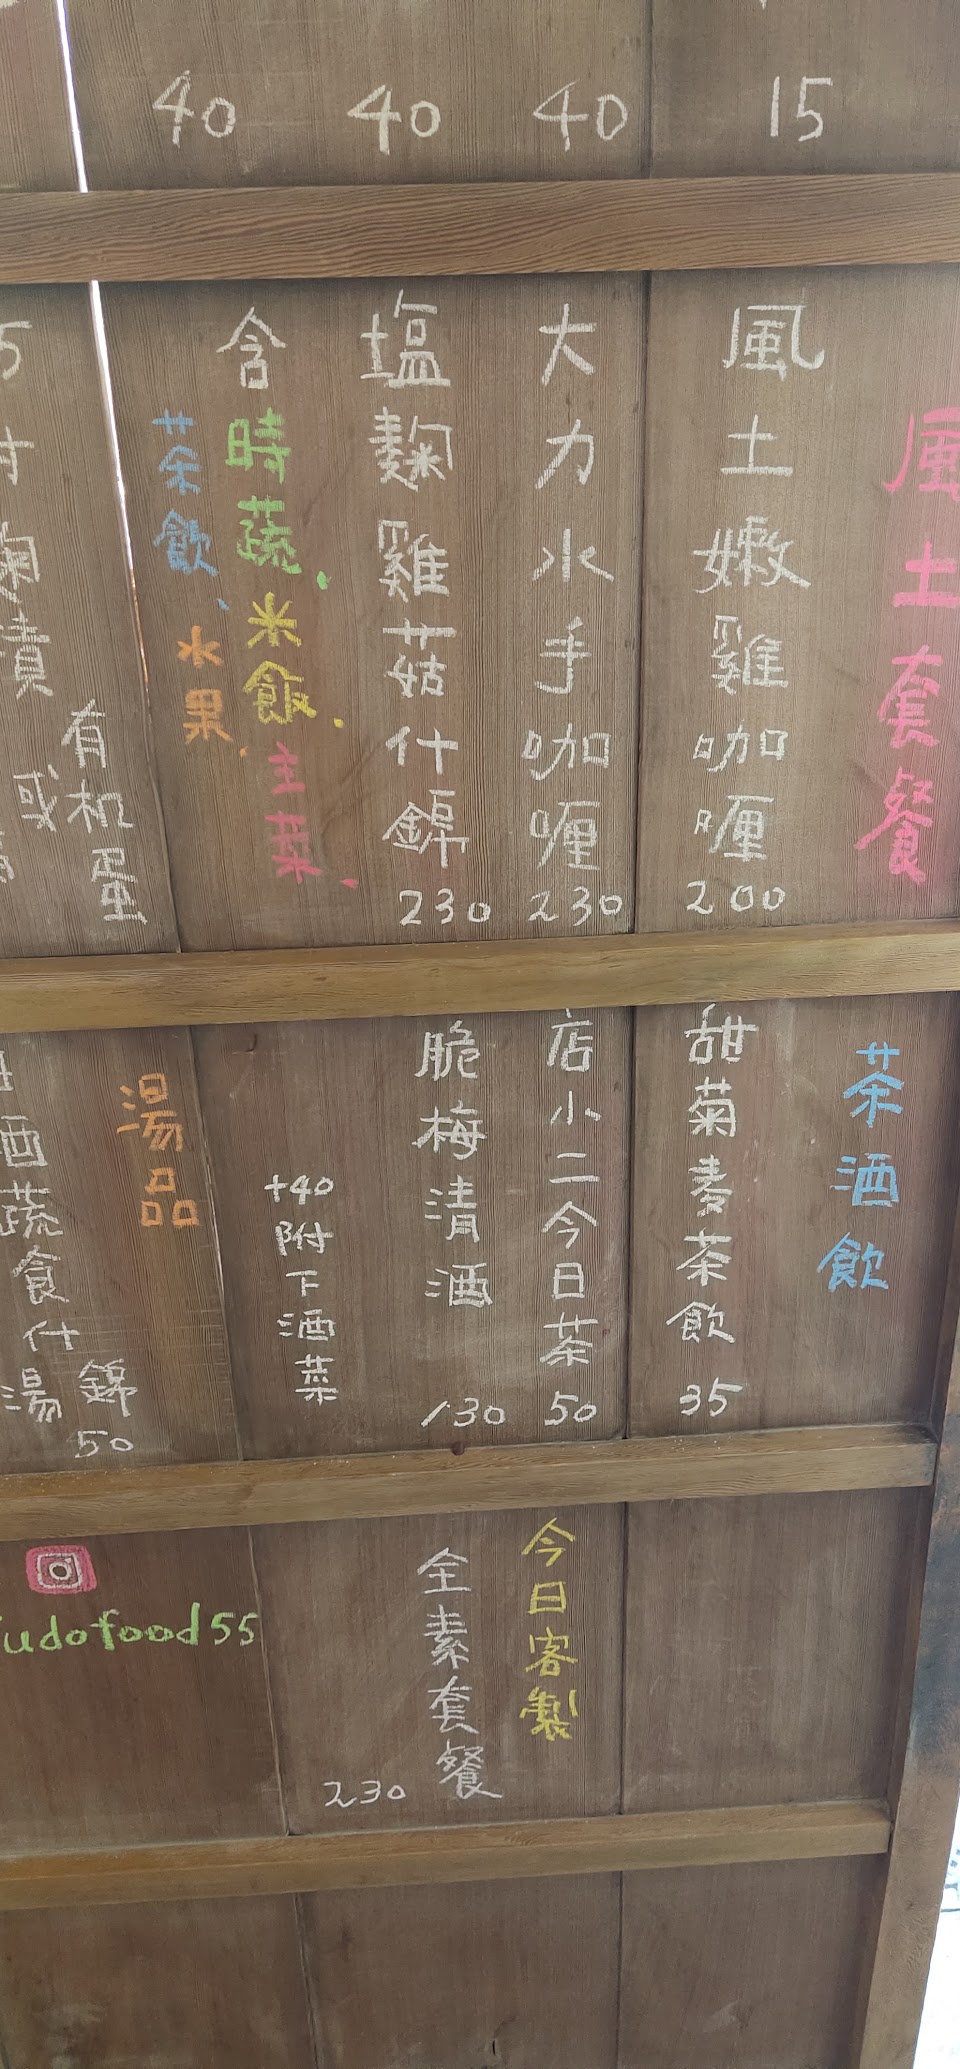 15
40
40
40
風土套餐
風土嫩雞咖喱
200
大力水手咖喱
230
塩麴雞菇什錦
230
含時蔬、米飯、主菜、
茶飲、水果、
有机蛋
或
茶酒飲
甜菊麥茶飲
35
店小二今日茶
50
脆梅清酒
130
+40
附下酒菜
湯品
酒蔬食什錦
湯
50
今日客製
全素套餐
230
udofood55